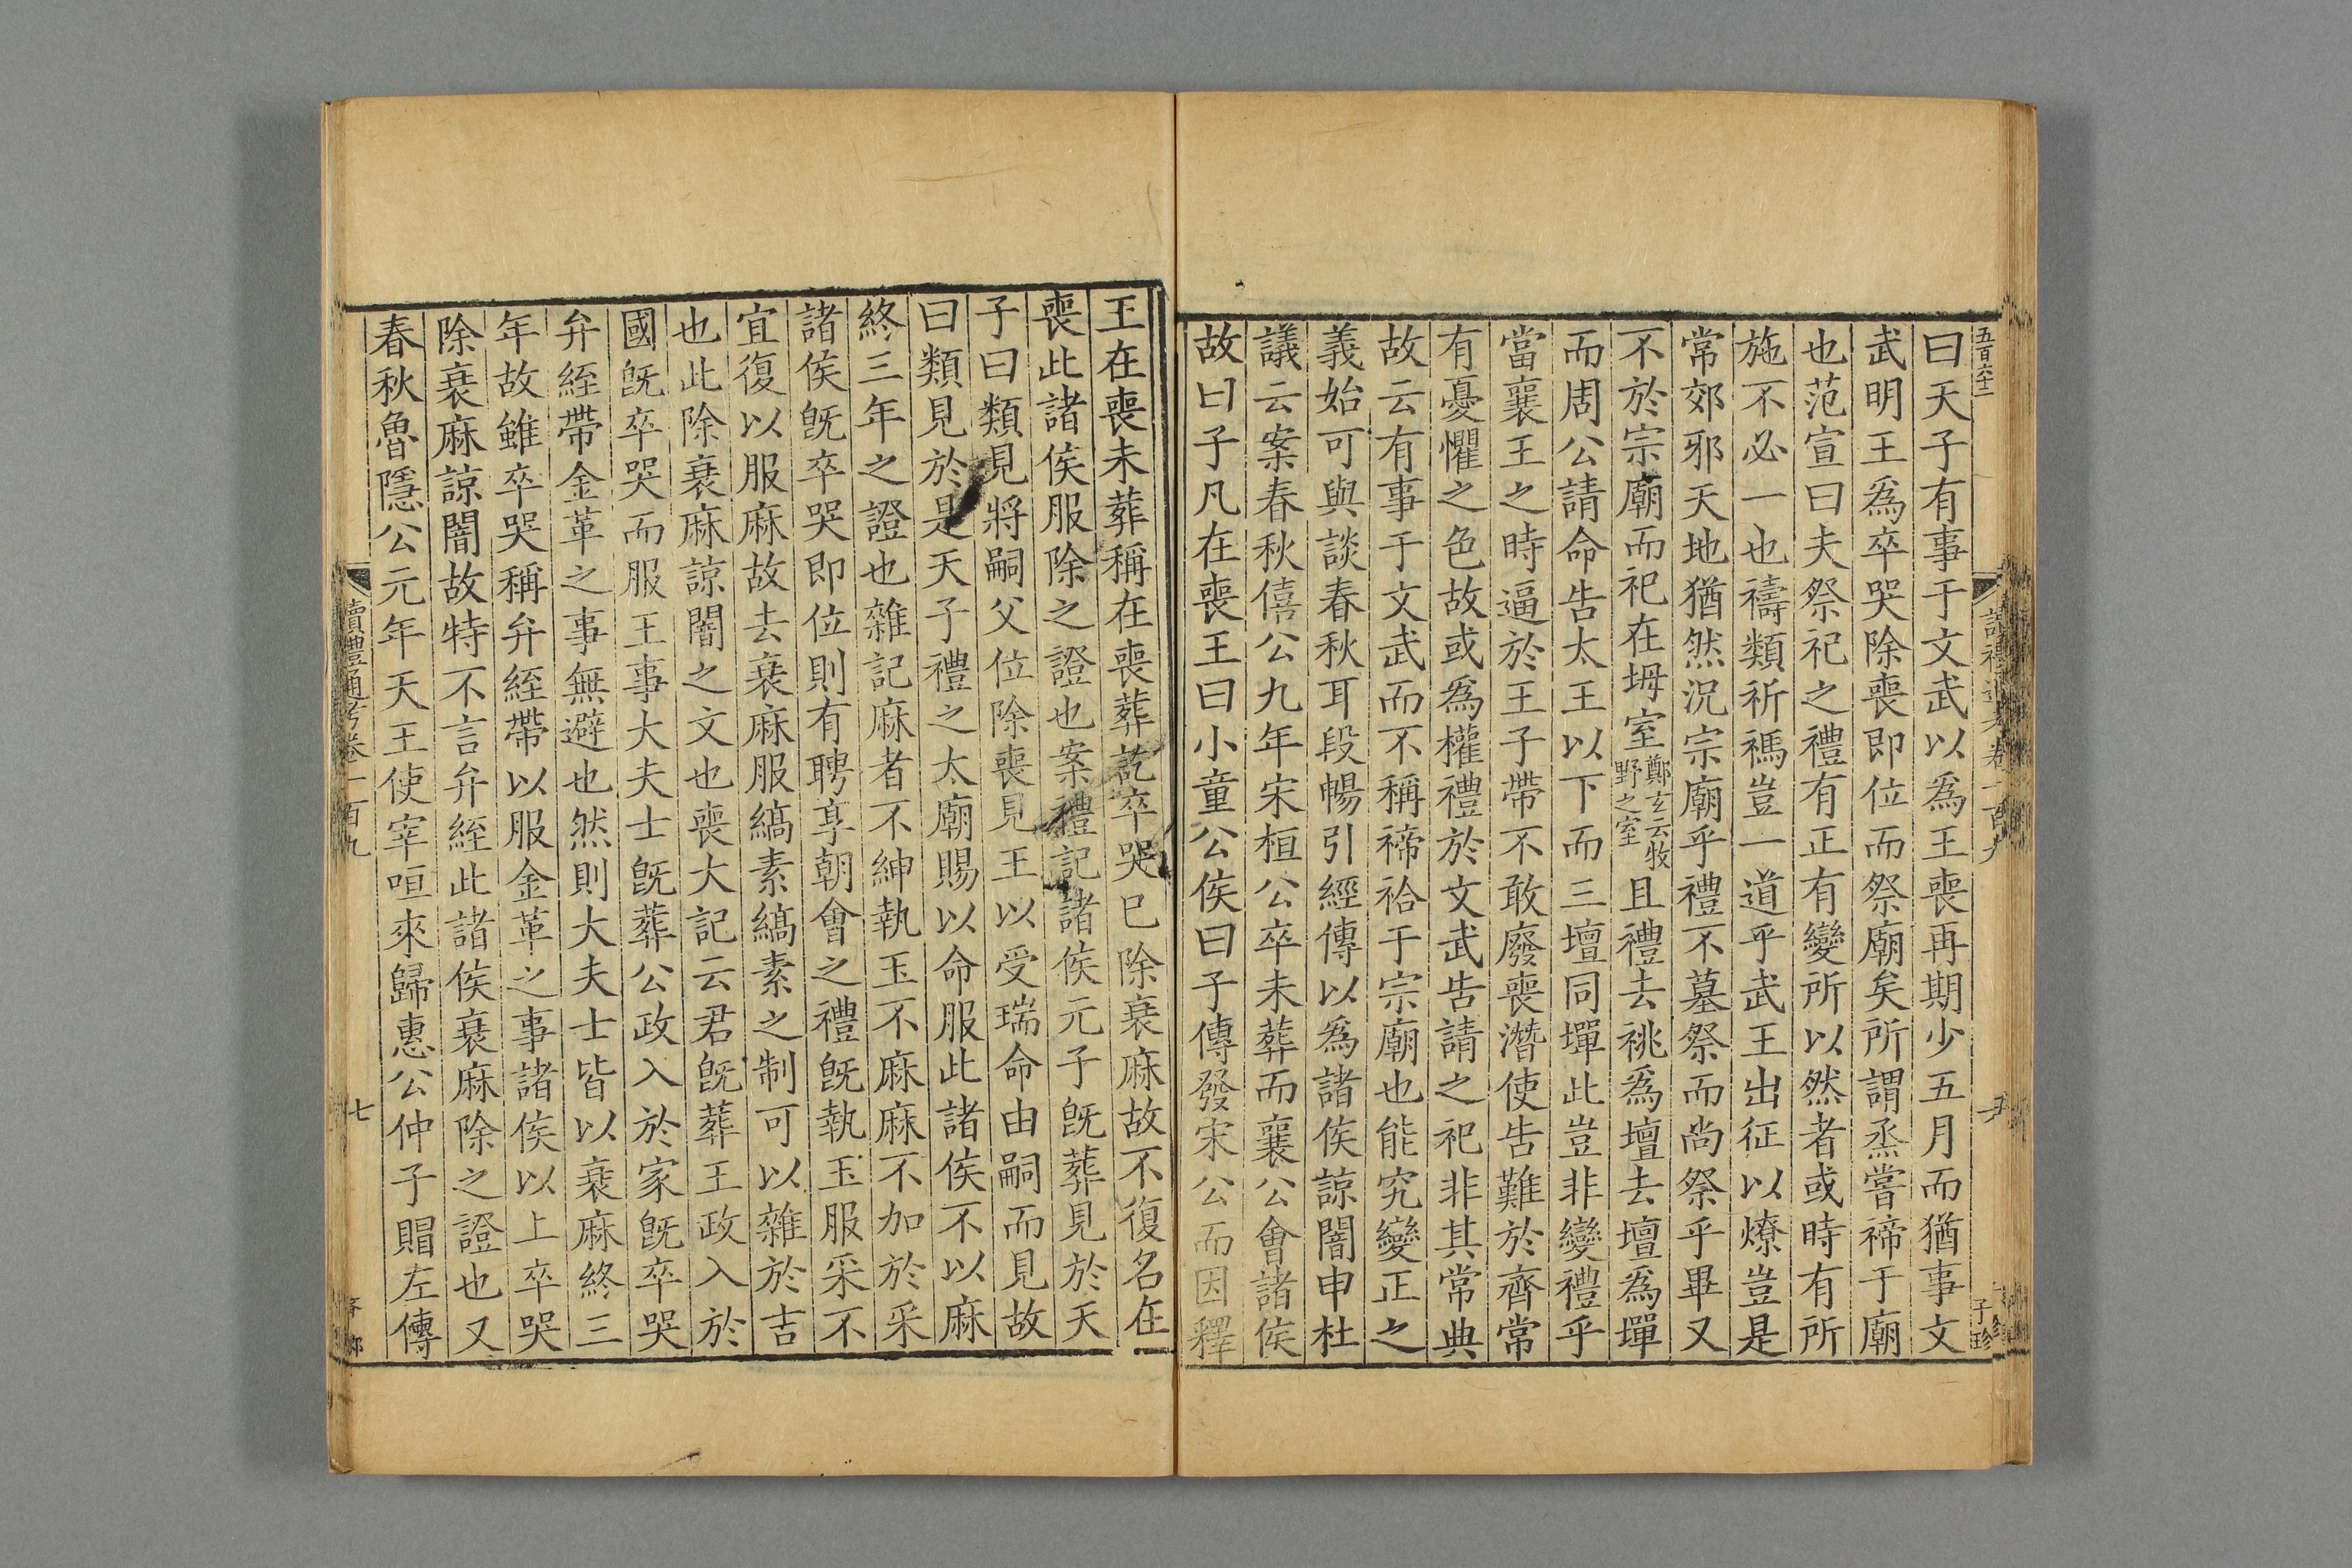 五百六十二
曰天子有事于文武以爲王喪再期少五月而猶事文
武明王爲卒哭除喪即位而祭廟矣所謂烝嘗禘于廟
也范宣曰夫祭祀之禮有正有變所以然者或時有所
施不必一也禱類祈禡豈一道乎武王出征以燎豈是
常郊邪天地猶然況宗廟乎禮不墓祭而尚祭乎畢又
不於宗廟而祀在坶室鄭玄云牧野之室且禮去祧爲壇去壇爲墠
而周公請命告太王以下而三壇同墠此豈非變禮乎
當襄王之時逼於王子帶不敢廢喪潛使告難於齊常
有憂懼之色故或爲權禮於文武告請之祀非其常典
故云有事于文武而不稱禘祫于宗廟也能究變正之
義始可與談春秋耳段暢引經傳以爲諸侯諒闇申杜
議云案春秋僖公九年宋桓公卒未葬而襄公會諸侯
故曰子凡在喪王曰小童公侯曰子傳發宋公而因釋
子珍
王在喪未葬稱在喪葬訖卒哭已除衰麻故不復名在
喪此諸侯服除之證也案禮記諸侯元子旣葬見於天
子曰類見將嗣父位除喪見王以受瑞命由嗣而見故
曰類見於是天子禮之太廟賜以命服此諸侯不以麻
終三年之證也雜記麻者不紳執玉不麻麻不加於采
諸侯旣卒哭即位則有聘享朝會之禮旣執玉服采不
宜復以服麻故去衰麻服縞素縞素之制可以雜於吉
也此除衰麻諒闇之文也喪大記云君旣葬王政入於
國旣卒哭而服王事大夫士旣葬公政入於家旣卒哭
弁絰帶金革之事無避也然則大夫士皆以衰麻終三
年故雖卒哭稱弁絰帶以服金革之事諸侯以上卒哭
除衰麻諒闇故特不言弁絰此諸侯衰麻除之證也又
春秋魯隱公元年天王使宰咺來歸惠公仲子賵左傳
讀禮通考卷一百九
七